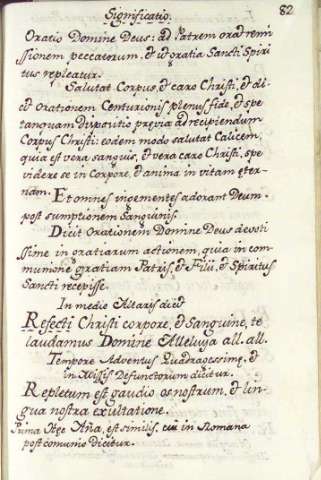 Significatio.
82
Oratio Domine Deus: ad Patrem orad remi
ssionem peccatorum, & ut gratia Sancti Spiri
tus repleatur.
Salutat Corpus, & caro Christi, & di-
cit orationem Centurionis plenus fide, & spe
tanquam dispositio previa ad recipiendum
Corpus Christi: eodem modo salutat Calicem,
quia est vera sanguis, & vera caro Christi, spe
videre se in Corpore, & anima in vitam eter-
nam. Et omnes ingementes adorant Deum
post sumptionem Sanguinis.
Dicit Orationem Domine Deus devoti
ssime in gratiarum actionem, quia in com-
munione gratiam Patris, & Filii, & Spiritus
Sancti recepisse.
In medio Altaris dicit
Refecti Christi corpore, & Sanguine, te
laudamus Domine Alleluya all. all.
Tempore Adventus Quadragessime, &
in Missis Defunctorum dicitur.
Repletum est gaudio os nostrum, & lin-
gua nostra exultatione.
Prima Aña, est similis, in Romana
post comunio dicitur.